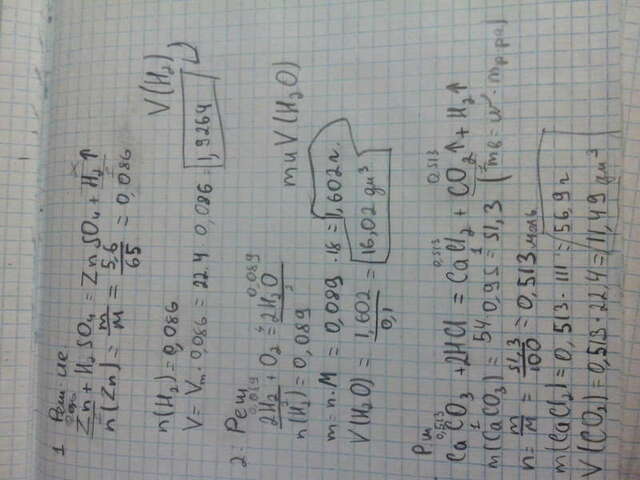 1 Реш-ие
0,086
Zn + H₂SO₄ = ZnSO₄ + H₂↑
n(Zn) = m/M = 5,6/65 = 0,086
V(H₂)
n(H₂) = 0,086
V = Vm · 0,086 = 22.4 · 0,086 = 1,9264
2. Реш
0,089 0,089
2H₂ + O₂ = 2H₂O
m и V(H₂O)
n(H₂) = 0,089
m = n · M = 0,089 · 18 = 1,602 г.
V(H₂O) = 1,602/0,1 = 16,02 дм³
Реш
0,513 0,513 0,513
CaCO₃ + 2HCl = CaCl₂ + CO₂↑ + H₂↑
1 1
m(CaCO₃) = 54 · 0,95 = 51,3 (mв = w · mр-ра)
n = m/M = 51,3/100 = 0,513 моль
m(CaCl₂) = 0,513 · 111 = 56,9 г
V(CO₂) = 0,513 · 22,4 = 11,49 дм³